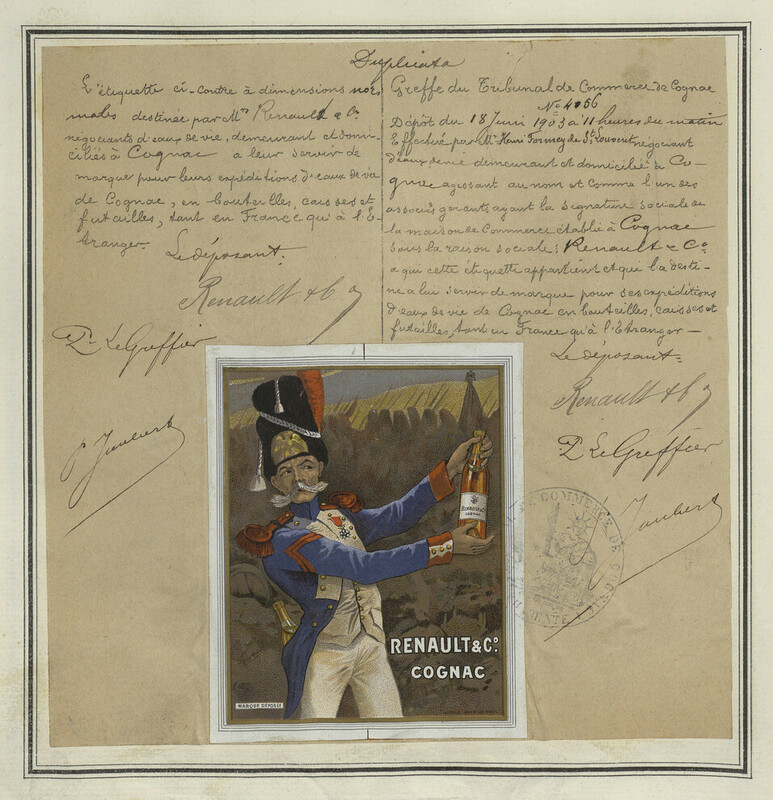 Duplicata
L'étiquette ci-contre à dimensions nor-
males destinée par Mrs Renault & Co
négociants d'eaux de vie, demeurant et domi-
ciliés à Cognac a leur servir de
marque pour leurs expéditions d'eaux de vie
de Cognac, en bouteilles, caisses et
futailles, tant en France qu'à l'E-
tranger.
Le déposant.
Renault & Co
Pr Le Greffier
P Jaubert
Greffe du Tribunal de Commerce de Cognac
No 4056
Dépôt du 18 Juin 1903 à 11 heures du matin
Effectué par Mr Henri Formey de St Louvent négociant
d'eaux de vie demeurant et domicilié à Co-
gnac agissant au nom et comme l'un des
associés gerants ayant la signature sociale de
la maison de Commerce établie à Cognac
sous la raison sociale: Renault & Co
a qui cette étiquette appartient et que la desti-
ne a lui servir de marque pour ses expéditions
d'eaux de vie de Cognac en bouteilles, caisses et
futailles, tant en France qu'à l'Etranger
Le déposant.
Renault & Co
Pr Le Greffier
P Jaubert
RENAULT & Co
COGNAC
RENAULT & Co.
COGNAC
MARQUE DÉPOSÉE
DE COMMERCE DE COGNAC
CHARENTE